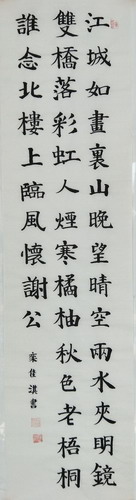 江城如畫裏山晚望晴空雨水夾明鏡
雙橋落彩虹人煙寒橘柚秋色老梧桐
誰念北樓上臨風懷謝公
佳淇書